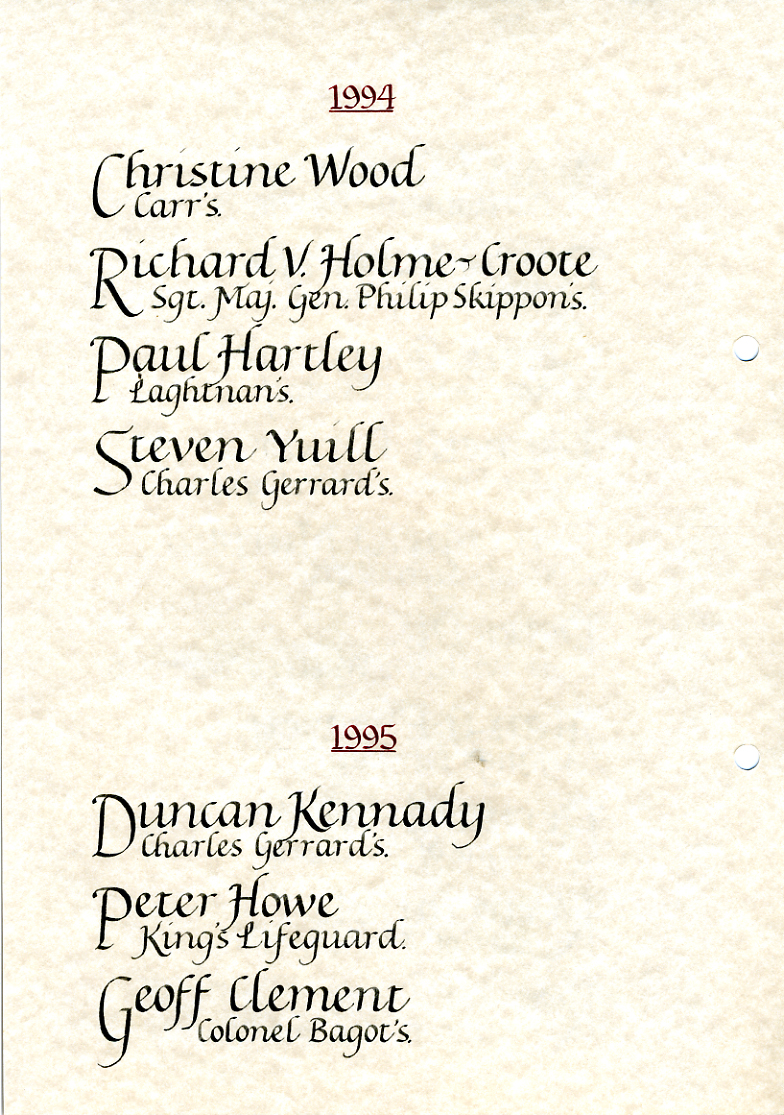 1994
Christine Wood
Carr's.
Richard V. Holme-Croote
Sgt. Maj. Gen. Philip Skippon's.
Paul Hartley
Laghtnan's.
Steven Yuill
Charles Gerrard's.
1995
Duncan Kennady
Charles Gerrard's.
Peter Howe
King's Lifeguard.
Geoff Clement
Colonel Bagot's.